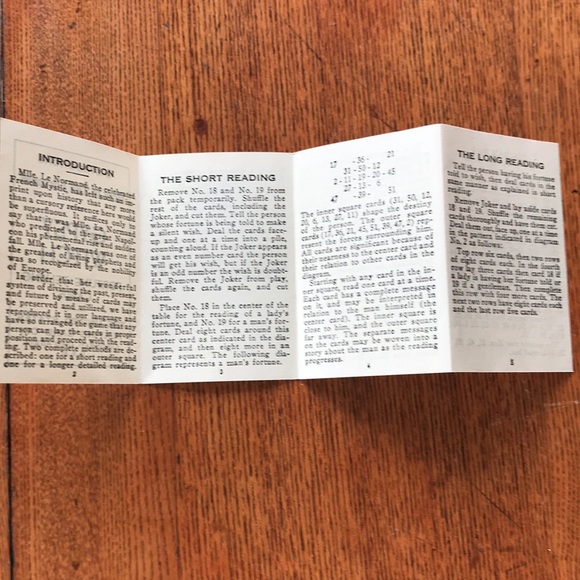 INTRODUCTION
Mlle. Le Normand, the celebrated
French Mystic, has left such an im-
print upon history that any more
than a cursory reference here would
be superfluous. It suffices only to
say that it was Mlle. Le Normand
who predicted to the great Napol-
eon his phenomenal rise and sudden
fall. Mlle. Le Normand was one of
the greatest of living prophets and
was patronized by the nobility
of Europe.
In order that her wonderful
system of divining the past, present,
and future by means of cards may
be preserved and utilized, we have
reproduced it in our language and
have so arranged the game that any
person can lay the cards in their
position and proceed with the read-
ing. Two complete methods are de-
scribed: one for a short reading and
one for a longer detailed reading.
2
THE SHORT READING
Remove No. 18 and No. 19 from
the pack temporarily. Shuffle the
rest of the cards, including the
Joker, and cut them. Tell the person
whose fortune is being told to make
a silent wish. Deal the cards face-
up and one at a time into a pile,
counting aloud. If the Joker appears
as an even number card the person
will get his wish, but if the Joker
is an odd number the wish is doubt-
ful. Remove the Joker from play,
shuffle the cards again, and cut
them.
Place No. 18 in the center of the
table for the reading of a lady's
fortune, and No. 19 for a man's for-
tune. Deal eight cards around the
center card as indicated in the dia-
gram, and then eight more in an
outer square. The following dia-
gram represents a man's fortune.
3
17 - 36 - 21
31 - 50 - 12
2 - 11 - 19 - 20 - 45
27 - 13 - 6
47 - 39 - 51
The inner square cards (31, 50, 12,
20, 6, 13, 27, 11) shape the destiny
of the person. The outer square
cards (17, 36, 21, 45, 51, 39, 47, 2) rep-
resent the forces surrounding him.
All cards are significant because of
their nearness to the center card and
their relation to other cards in the
diagram.
Starting with any card in the in-
ner square, read one card at a time.
Each card has a complete message
on it, and may be interpreted in
relation to the man himself (the
center card). The inner square is
close to him, and the outer square
far away. The separate messages
on the cards may be woven into a
story about the man as the reading
progresses.
4
THE LONG READING
Tell the person having his fortune
told to wish, then deal cards in the
same manner as explained in short
reading.
Remove Joker and lay aside cards
18 and 19. Shuffle the remaining
cards thoroughly and have them cut.
Deal them out, face up, one at a time
in the pattern outlined in diagram
No. 2 as follows:
Top row six cards, then two rows
of eight cards each. In the fourth
row lay three cards then card No. 18
if lady is having her fortune told or
19 if a gentleman. Then complete
the row with four more cards. The
next two rows have eight cards each
and the last row five cards.
5